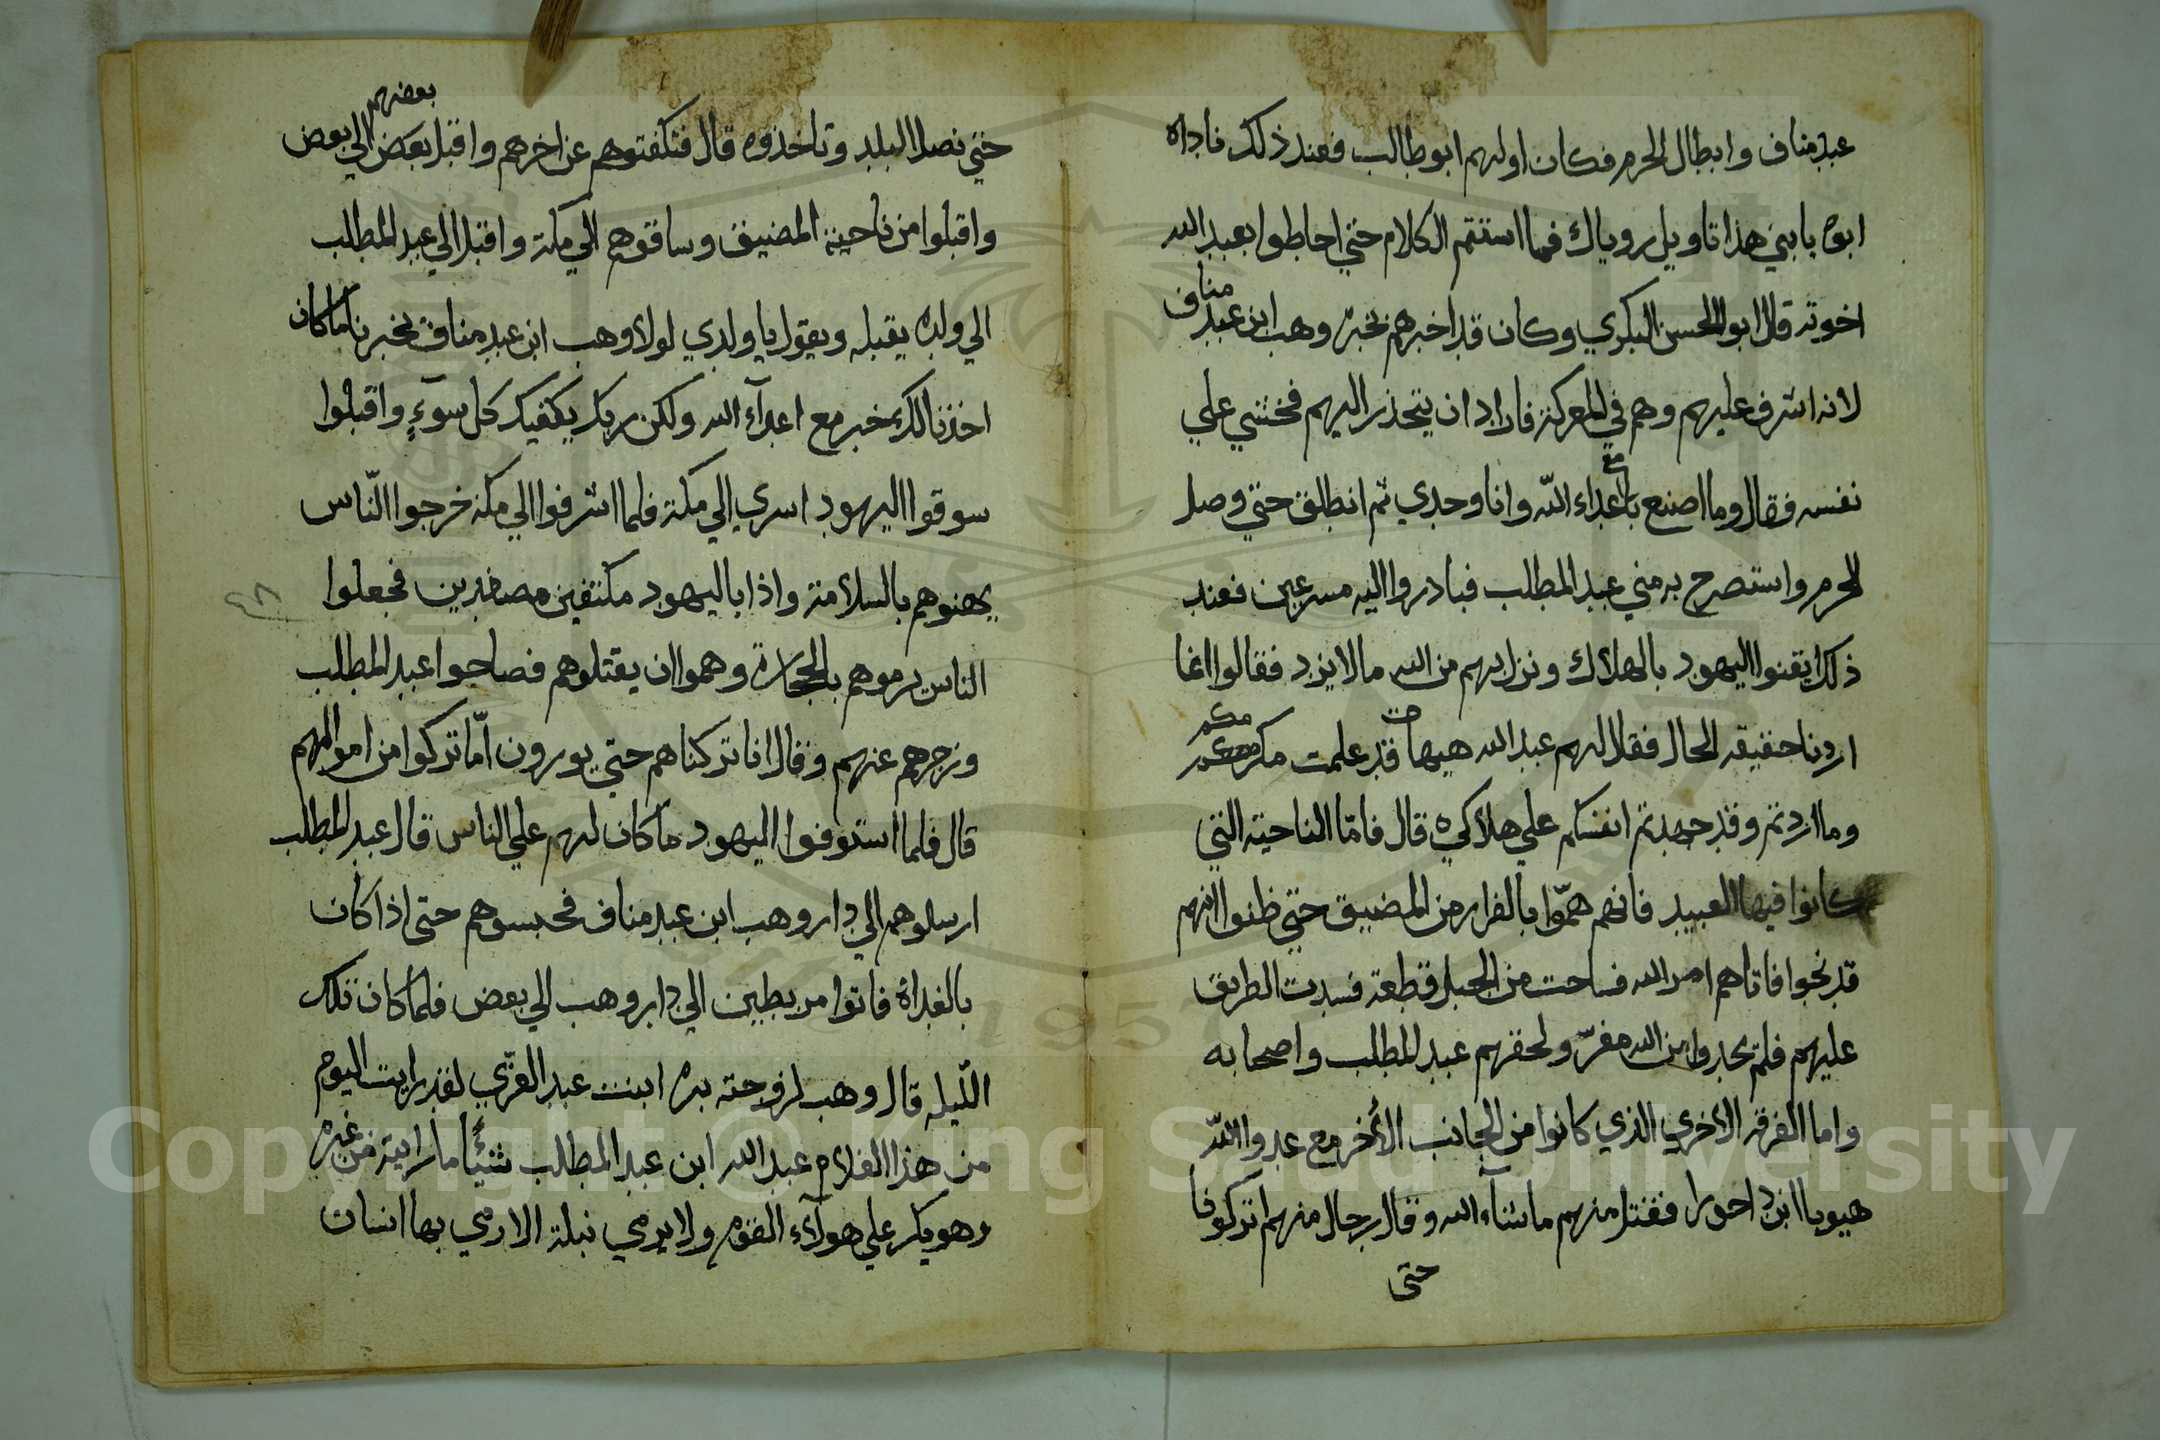 عبد مناف وابطال الحرم فكان اولهم ابو طالب فعند ذلك ناداه
ابوه يابني هذا تاويل روياك فما استتم الكلام حتي احاطوا بعبد الله
اخوته قال ابو الحسن البكري وكان قد اخبرهم بخبره وهب ابن عبد مناف
لانه اشرف عليهم وهم في المعركة فاراد ان ينحدر اليهم فخشي علي
نفسه فقال وما اصنع مع اعداء اللّه وانا وحدي ثم انطلق حتي وصل
للحرم واستصرخ به مني عبد المطلب فبادروا اليه مسرعين فعند
ذلك ايقنوا اليهود بالهلاك ونزل بهم من الله مالا يرد فقالوا انما
اردنا حقيقه الحال فقال لهم عبد الله هيهات قد علمت مكركم
وما اردتم وقد جهدتم انفسكم علي هلاكي قال فامّا الناحية التي
كانوا فيها العبيد فانهم همّوا بالفرار من المضيق حتي ظنوا انهم
قد نجوا فاتاهم امر الله فساحت من الجبل قطعة فسدت الطريق
عليهم فلم يجدوا من الله مفرّ ولحقهم عبد المطلب واصحابه
واما الفرقه الاخري الذي كانوا من الجانب الأخر مع عدوا اللّه
هيوبا ابن داحورا فقتل منهم ماشآء الله وقال رجال منهم اتركونا
حتى
حتي نصل البلد وتاخذوه قال فتكفتوهم عن اخرهم واقبل بعضهم الي بعض
واقبلوا من ناحية المضيق وساقوهم الي مكة واقبل الي عبد المطلب
الي ولده يقبله ويقول يا ولدي لولا وهب ابن عبد مناف يخبرنا ما كان
اخذنا لك بخبر مع اعدآء الله ولكن ربك يكفيك كل سوٓءٍ واقبلوا
سوقوا اليهود اسري الي مكة فلما اشرفوا الي مكه خرجوا النّاس
يهنوهم بالسلامة واذا باليهود مكتفين مصفدين فجعلوا
الناس يرموهم بالحجارة وهموا ان يقتلوهم فصاحوا عبد المطلب
وزجرهم عنهم وقال انا تركناهم حتي يورون امّا تركوا من اموالهم
قال فلما استوفوا اليهود ما كان لهم علي الناس قال عبد المطلب
ارسلوهم الي دار وهب ابن عبد مناف فحبسوهم حتى اذا كان
بالغداة فاتوا مربطين الي دار وهب الي بعض فلما كان تلك
اللّيله قال وهب لزوجته بره ابنت عبد العزّي لقد رايت اليوم
من هذا الغلام عبد الله ابن عبد المطلب شيئًا ما رايته من غيره
وهو يكر علي هولآء القوم ولا يرمي نبلة الا رمي بها انسان
٤٨
Copyright © King Saud University
1957